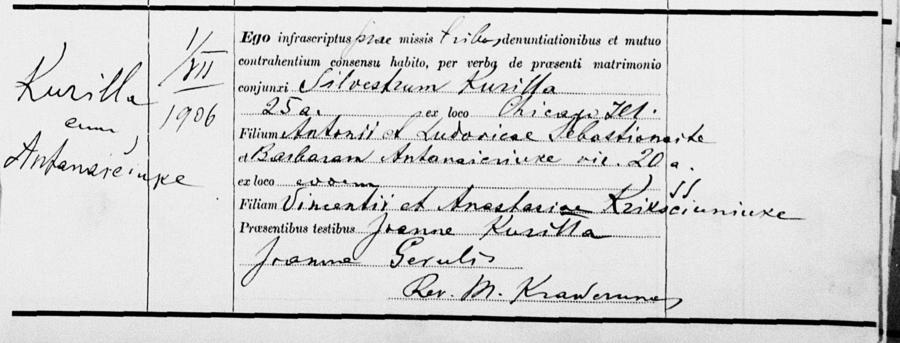 Kurilla
cum
Antanaičiuke
1/VII
1906
Ego infrascriptus prae missis tribus denuntiationibus et mutuo
contrahentium consensu habito, per verba de præsenti matrimonio
conjunxi Silvestrum Kurilla
25 a. ex loco Chicago Ill.
Filium Antonii et Ludovicae
et Barbaram Antanaiciuke 20 a.
ex loco eodem
Filiam Vincentii et Anastasiae Krikščiuniuke
Præsentibus testibus Joanne Kurilla
Joanne Gerulis
Rev. M.